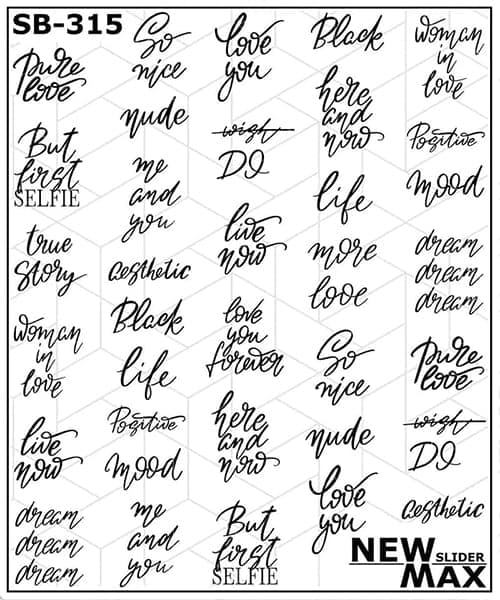 SB-315
Pure
love
But
first
SELFIE
true
story
woman
in
love
live
now
dream
dream
dream
So
nice
nude
me
and
you
aesthetic
Black
life
Positive
mood
me
and
you
love
you
wish
DO
live
now
love
you
forever
here
and
now
But
first
SELFIE
Black
here
and
now
life
more
love
So
nice
nude
love
you
woman
in
love
Positive
mood
dream
dream
dream
Pure
love
wish
DO
aesthetic
NEW SLIDER
MAX